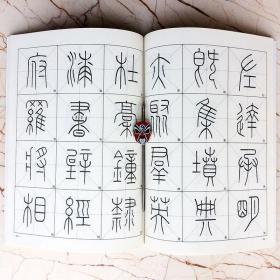 左達承明
既集墳典
亦聚羣英
杜稾鐘隸
漆書壁經
府羅將相